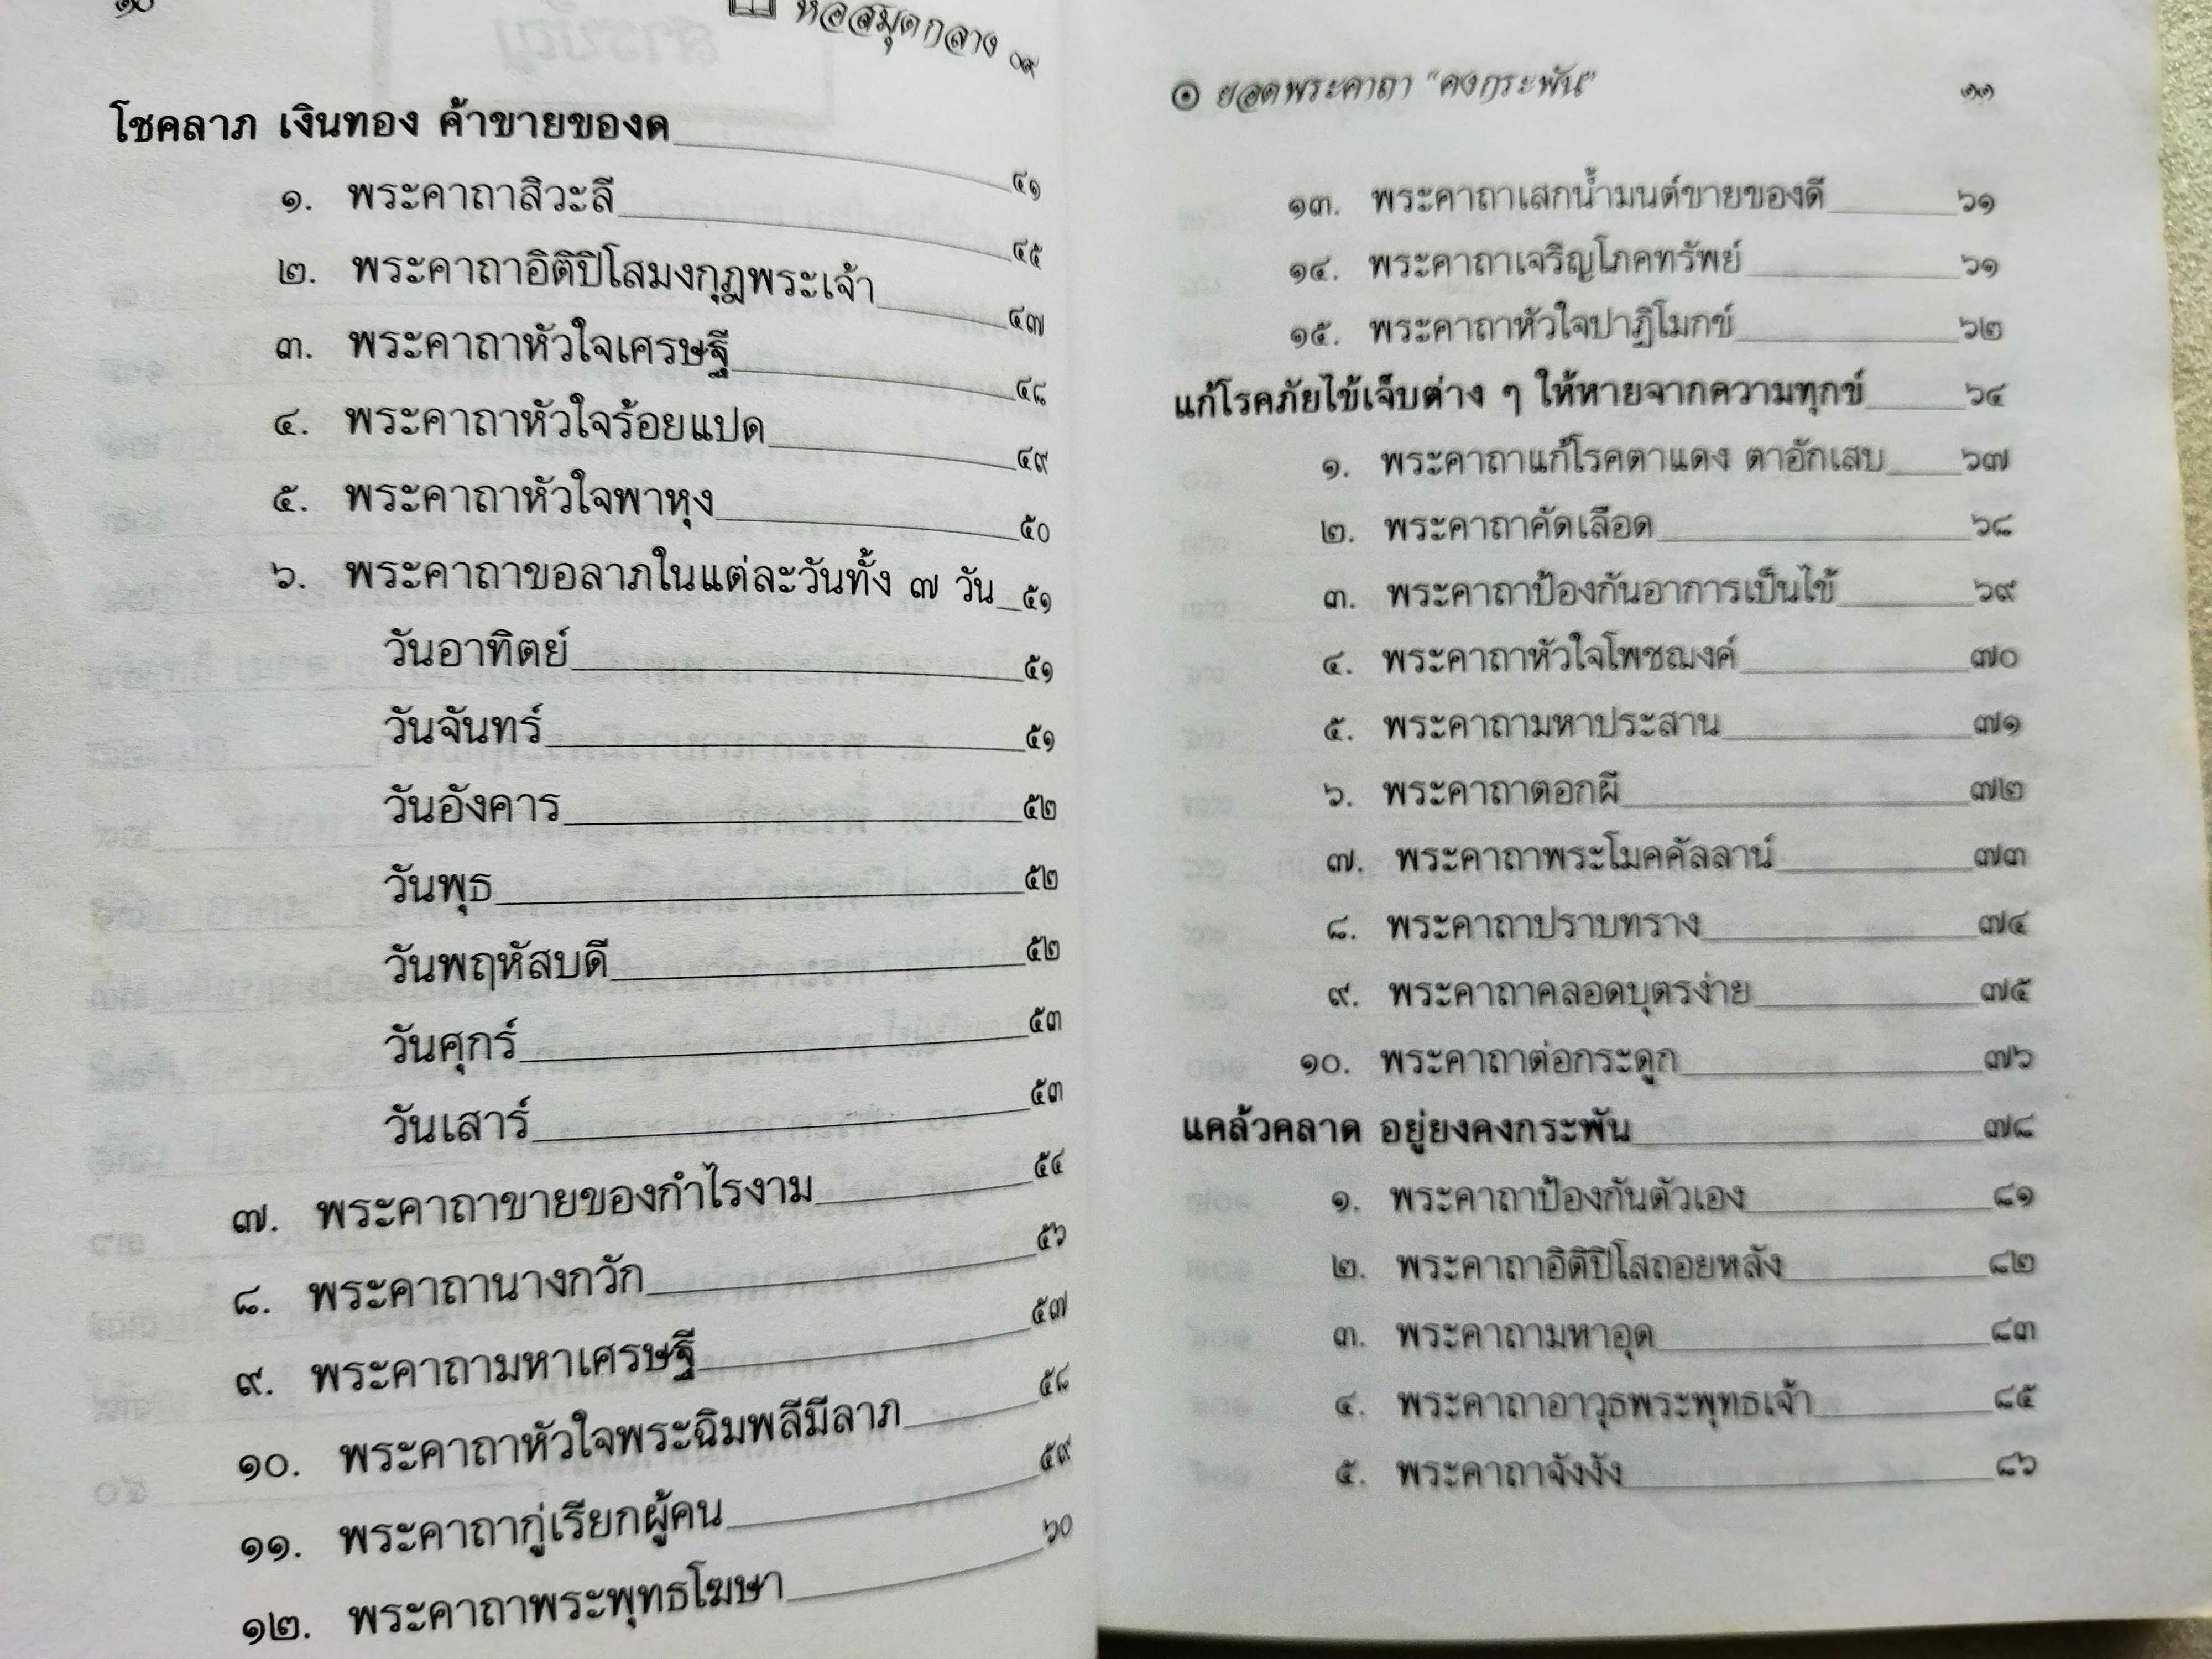 ๑๐
หอสมุดกลาง ๐๙
โชคลาภ เงินทอง ค้าขายของด ๔๑
๑. พระคาถาสิวะลี ๔๕
๒. พระคาถาอิติปิโสมงกุฎพระเจ้า ๔๗
๓. พระคาถาหัวใจเศรษฐี ๔๘
๔. พระคาถาหัวใจร้อยแปด ๔๙
๕. พระคาถาหัวใจพาหุง ๕๐
๖. พระคาถาขอลาภในแต่ละวันทั้ง ๗ วัน ๕๑
วันอาทิตย์ ๕๑
วันจันทร์ ๕๑
วันอังคาร ๕๒
วันพุธ ๕๒
วันพฤหัสบดี ๕๒
วันศุกร์ ๕๓
วันเสาร์ ๕๓
๗. พระคาถาขายของกำไรงาม ๕๔
๘. พระคาถานางกวัก ๕๖
๙. พระคาถามหาเศรษฐี ๕๗
๑๐. พระคาถาหัวใจพระฉิมพลีมีลาภ ๕๘
๑๑. พระคาถากู่เรียกผู้คน ๕๙
๑๒. พระคาถาพระพุทธโฆษา ๖๐
ยอดพระคาถา "คงกระพัน" ๑๑
๑๓. พระคาถาเสกน้ำมนต์ขายของดี ๖๑
๑๔. พระคาถาเจริญโภคทรัพย์ ๖๑
๑๕. พระคาถาหัวใจปาฏิโมกข์ ๖๒
แก้โรคภัยไข้เจ็บต่าง ๆ ให้หายจากความทุกข์ ๖๔
๑. พระคาถาแก้โรคตาแดง ตาอักเสบ ๖๗
๒. พระคาถาคัดเลือด ๖๘
๓. พระคาถาป้องกันอาการเป็นไข้ ๖๙
๔. พระคาถาหัวใจโพชฌงค์ ๗๐
๕. พระคาถามหาประสาน ๗๑
๖. พระคาถาตอกผี ๗๒
๗. พระคาถาพระโมคคัลลาน์ ๗๓
๘. พระคาถาปราบทราง ๗๔
๙. พระคาถาคลอดบุตรง่าย ๗๕
๑๐. พระคาถาต่อกระดูก ๗๖
แคล้วคลาด อยู่ยงคงกระพัน ๗๘
๑. พระคาถาป้องกันตัวเอง ๘๑
๒. พระคาถาอิติปิโสถอยหลัง ๘๒
๓. พระคาถามหาอุด ๘๓
๔. พระคาถาอาวุธพระพุทธเจ้า ๘๕
๕. พระคาถาจังงัง ๘๖